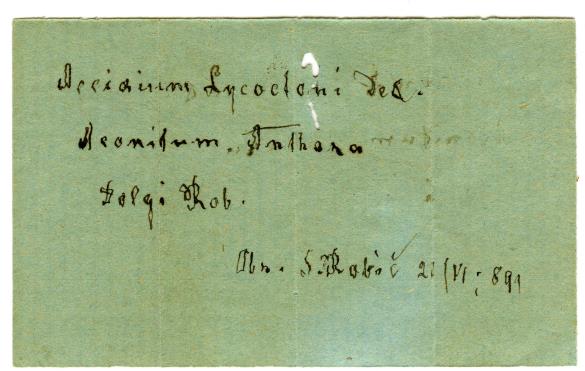 Aecidium Lycoctoni DeC.
Aconitum. Anthora
Dolgi Rob.
Obs. S. Robič 21/VI; 891